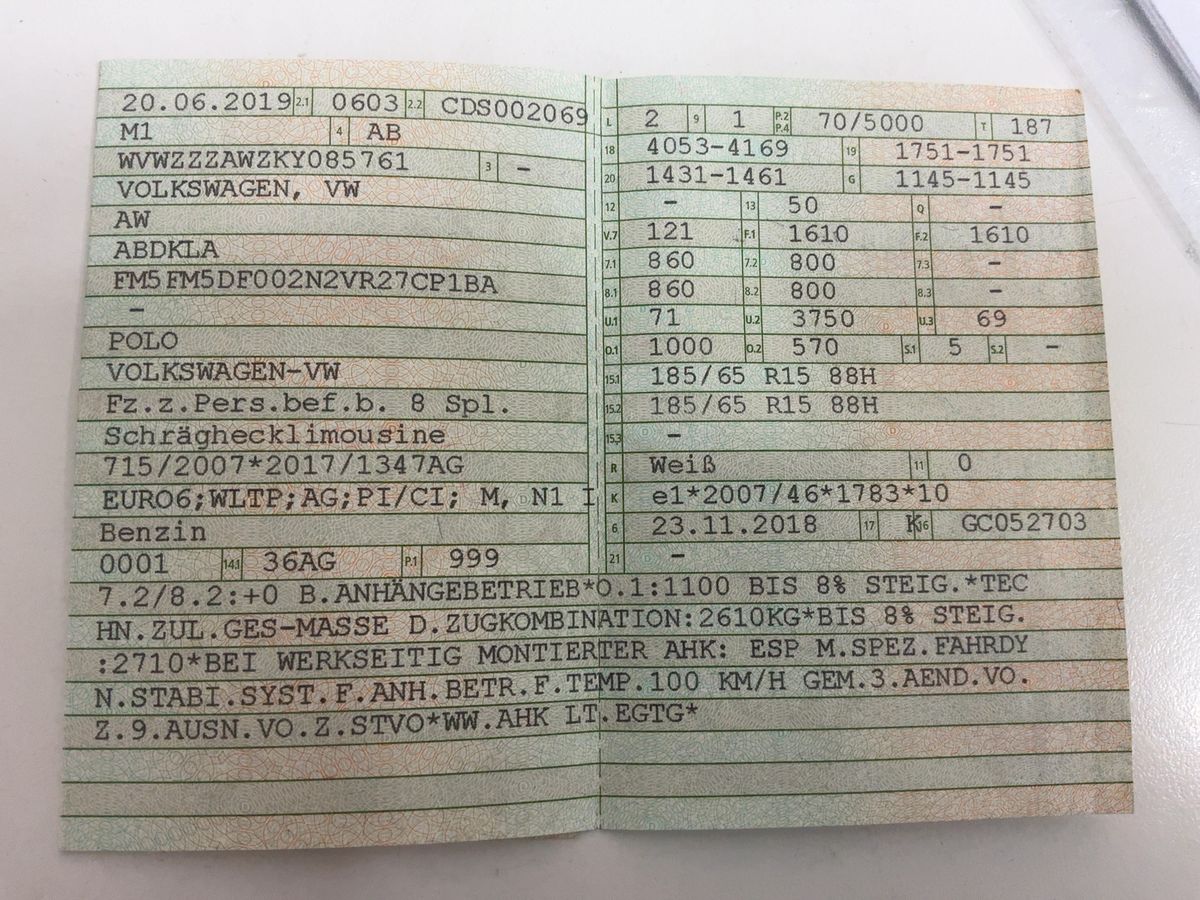 20.06.2019 2.1 0603 2.2 CDS002069
M1 4 AB
WVWZZZAWZKY085761 3 –
VOLKSWAGEN, VW
AW
ABDKLA
FM5FM5DF002N2VR27CP1BA
–
POLO
VOLKSWAGEN-VW
Fz.z.Pers.bef.b. 8 Spl.
Schräghecklimousine
715/2007*2017/1347AG
EURO6;WLTP;AG;PI/CI; M, N1 I
Benzin
0001 14.1 36AG P.1 999
L 2 9 1 P.2 P.4 70/5000 T 187
18 4053-4169 19 1751-1751
20 1431-1461 G 1145-1145
12 – 13 50 Q –
V.7 121 F.1 1610 F.2 1610
7.1 860 7.2 800 7.3 –
8.1 860 8.2 800 8.3 –
U.1 71 U.2 3750 U.3 69
O.1 1000 O.2 570 S.1 5 S.2 –
15.1 185/65 R15 88H
15.2 185/65 R15 88H
15.3 –
R Weiß 11 0
K e1*2007/46*1783*10
6 23.11.2018 17 K 16 GC052703
21 –
7.2/8.2:+0 B.ANHÄNGEBETRIEB*O.1:1100 BIS 8% STEIG.*TEC
HN.ZUL.GES-MASSE D.ZUGKOMBINATION:2610KG*BIS 8% STEIG.
:2710*BEI WERKSEITIG MONTIERTER AHK: ESP M.SPEZ.FAHRDY
N.STABI.SYST.F.ANH.BETR.F.TEMP.100 KM/H GEM.3.AEND.VO.
Z.9.AUSN.VO.Z.STVO*WW.AHK LT.EGTG*